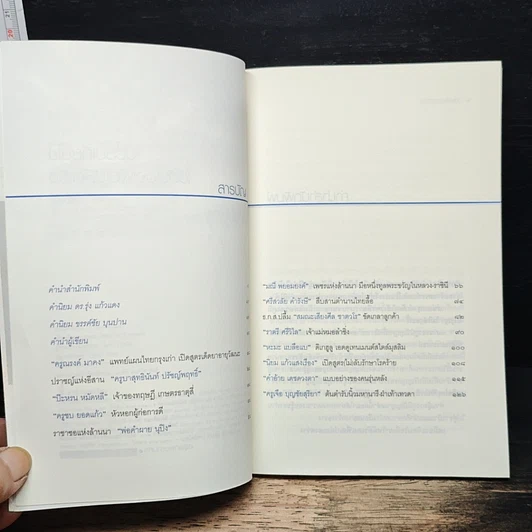 สารบัญ
คำนำสำนักพิมพ์
คำนิยม ดร.รุ่ง แก้วแดง
คำนิยม ขรรค์ชัย บุนปาน
คำนำผู้เขียน
"ดรุณรงค์ มาคง" แพทย์แผนไทยกรุงเก่า เปิดสูตรเด็ดยาอายุวัฒนะ
ปราชญ์แห่งอีสาน "ครูบาสุทธินันท์ ปรัชญ์พฤทธิ์"
"บ๊ะหรน หมัดหลี" เจ้าของทฤษฎี เกษตรธาตุสี่
"ครูชบ ยอดแก้ว" หัวหอกผู้ก่อการดี
ราชาซอแห่งล้านนา "พ่อคำผาย นุปิง"
"มณี พยอมยงค์" เพชรแห่งล้านนา มือหนึ่งทูลพระขวัญในหลวง-ราชินี ๖๖
"ศรีสวลัย คำรังษี" สืบสานตำนานไทยลื้อ ๗๔
ธ.ก.ส.ปลื้ม "สมณะเสียงศีล ชาตวโร" รัดเกลาลูกค้า ๘๒
"ราตรี ศรีวิไล" เจ้าแม่หมอลำซิ่ง ๙๐
"หะมะ แบลือแบ" ดิเกฮูลู เอดคูเทนเมนต์สไตล์มุสลิม ๑๐๐
"นิยม แก้วแสงเรือง" เปิดสูตรไม่ลับรักษาโรคร้าย ๑๐๘
"คำอ้าย เดชดวงตา" แบบอย่างของคนรุ่นหลัง ๑๑๕
"ครูเจือ บุญชัยสุริยา" ต้นตำรับนิ้วมหานารี-ง่ายท้าเทวดา ๑๒๖